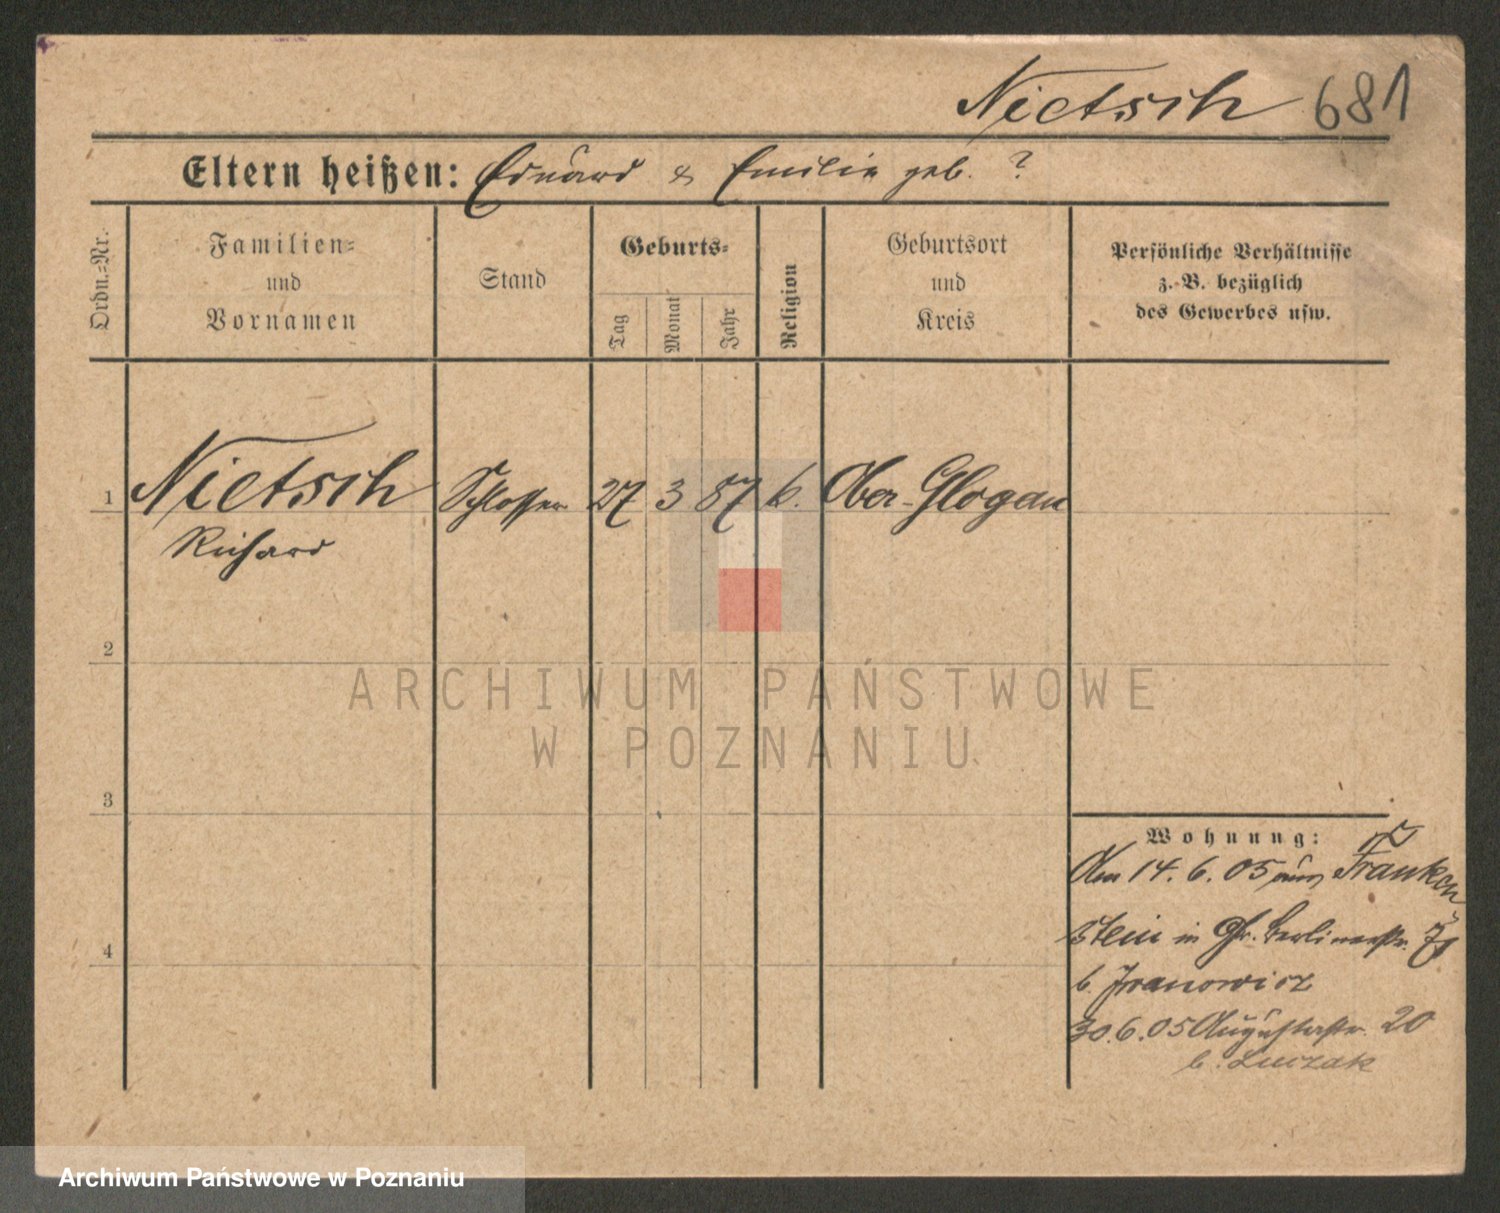 Nietsch 681
Eltern heißen: Eduard & Emilie geb. ?
Ordn.-Nr.
Familien-
und
Vornamen
Stand
Geburts-
Tag
Monat
Jahr
Religion
Geburtsort
und
Kreis
Persönliche Verhältnisse
z. B. bezüglich
des Gewerbes usw.
1 Nietsch Schlosser 27 3 87 k. Ober-Glogau
Richard
2
ARCHIWUM PAŃSTWOWE
W POZNANIU
3
Wohnung:
Am 14. 6. 05 aus Franken
stein in Gr. Berlinerstr.
4
b. Iwanowicz
30.6.05 Augustastr. 20
b. Luczak
Archiwum Państwowe w Poznaniu